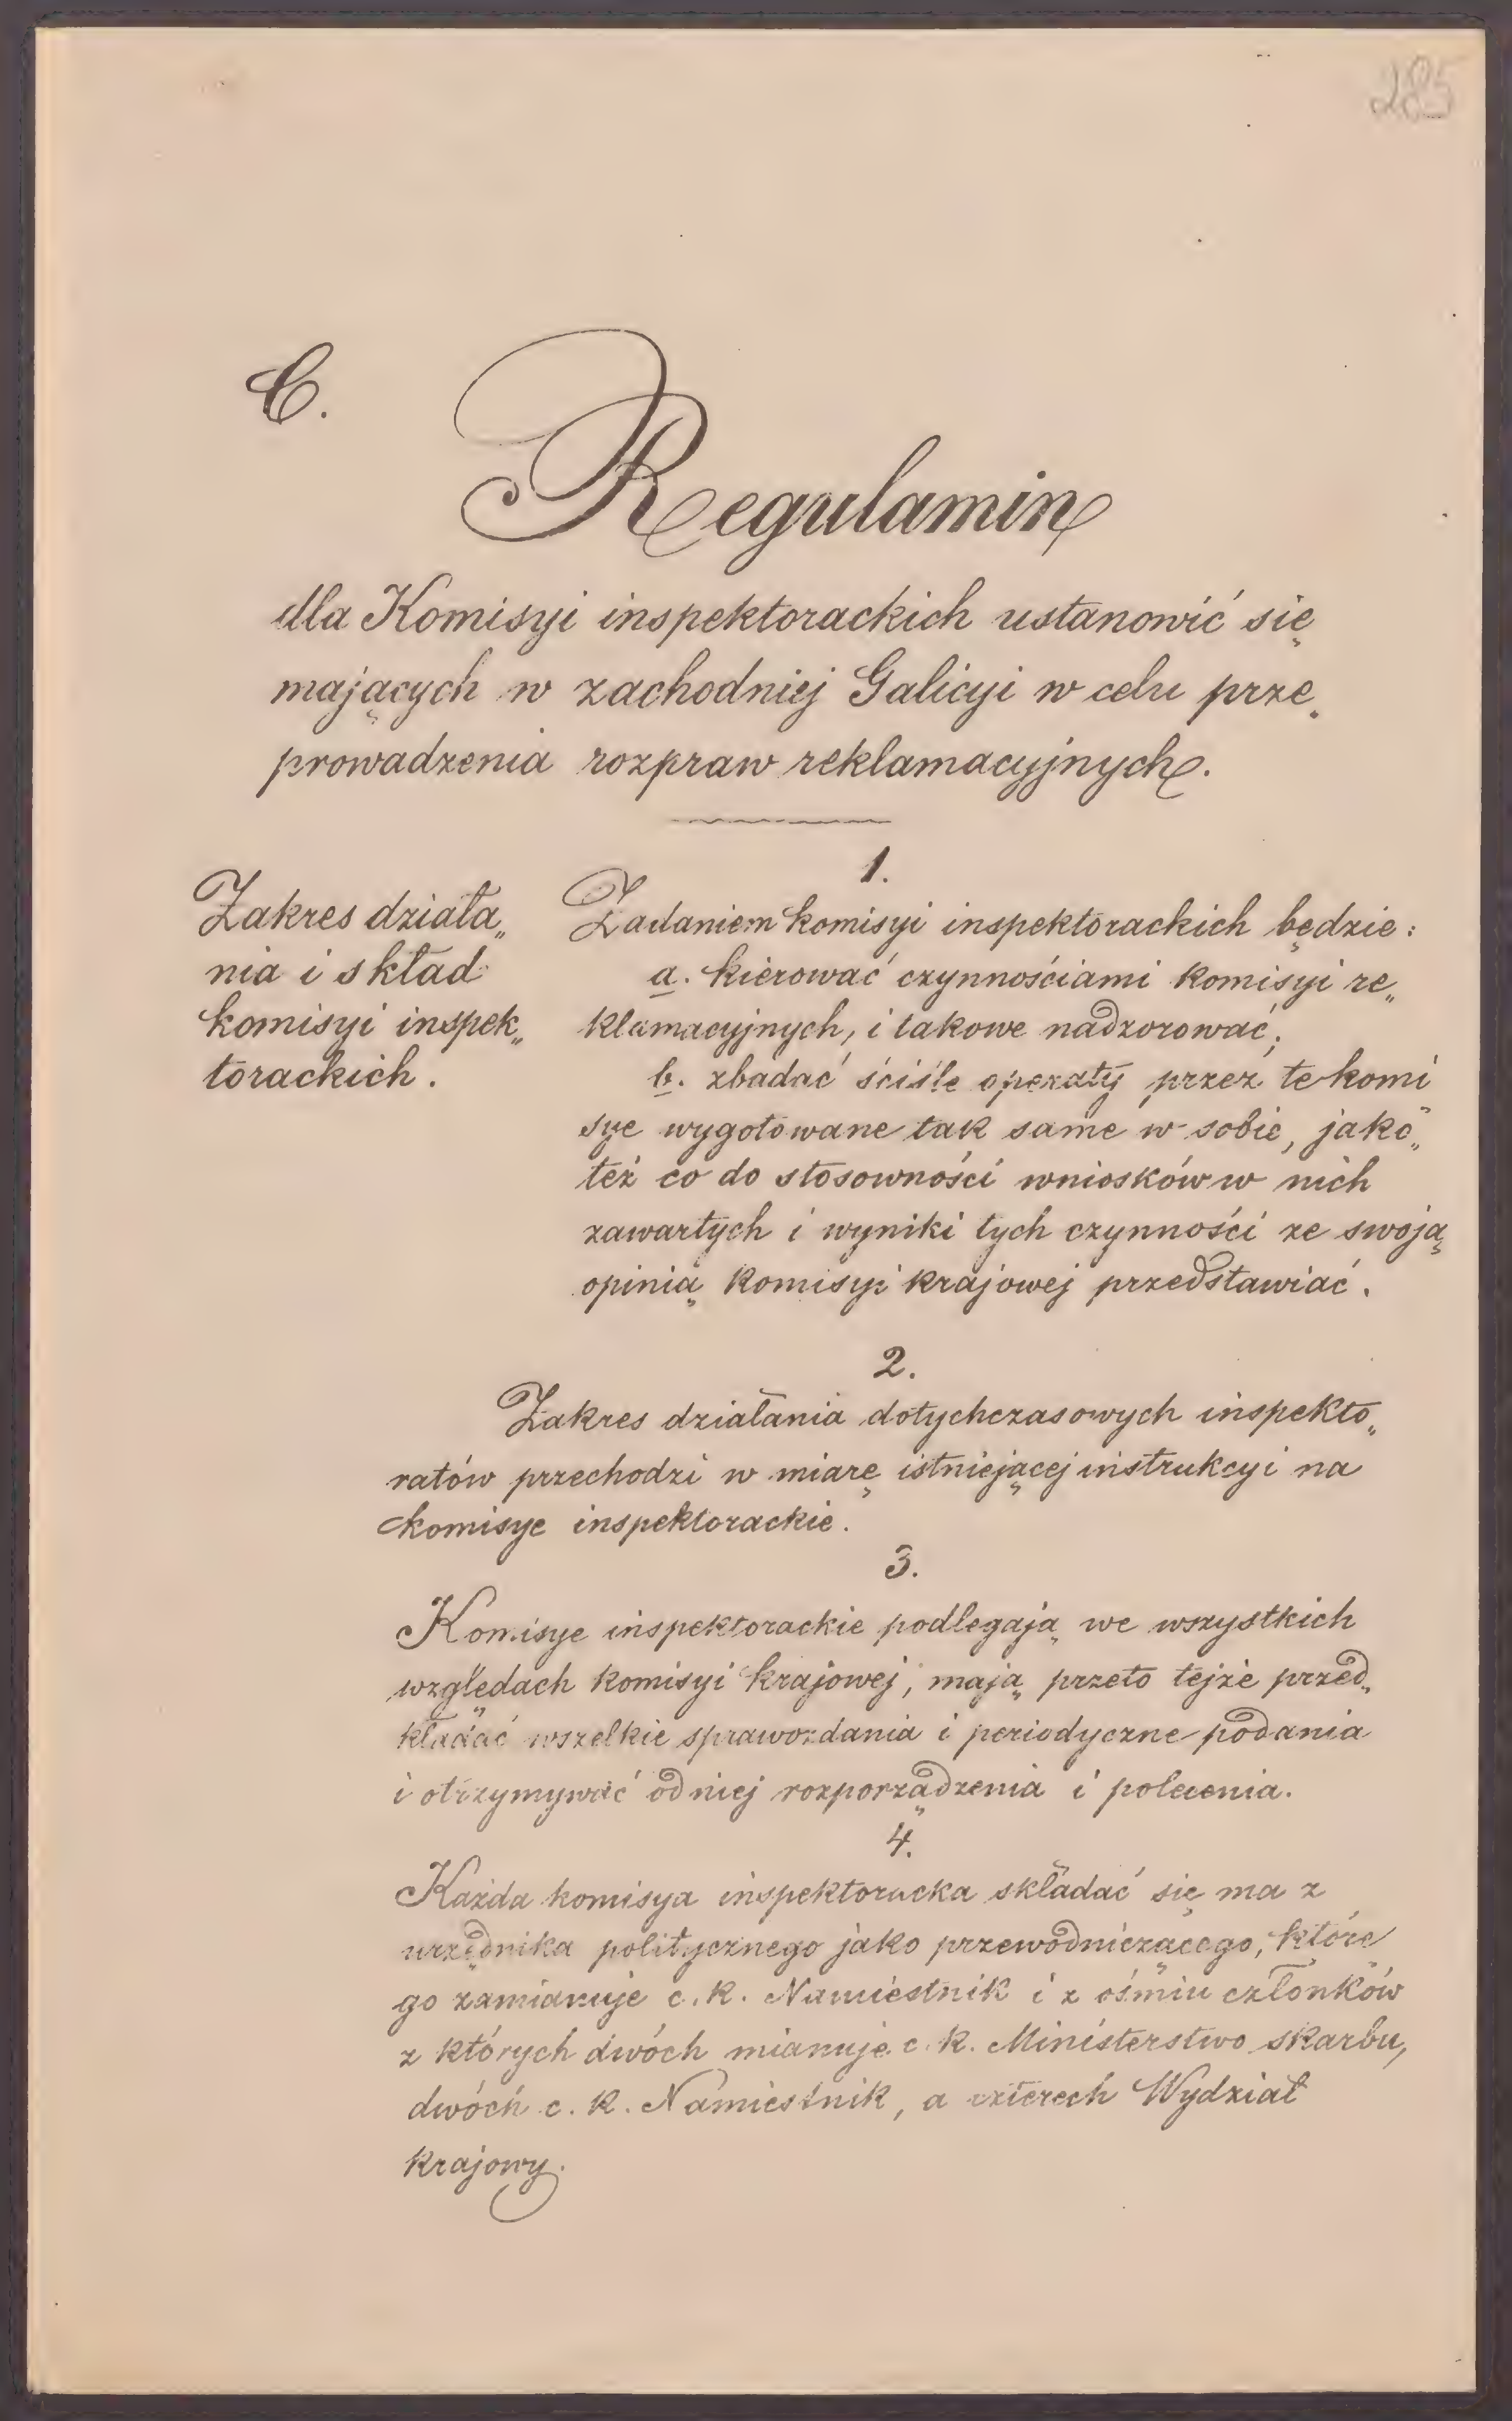 285
C.
Regulamin
dla Komisyi inspektorackich ustanowić się
mających w zachodniej Galicyi w celu prze„
prowadzenia rozpraw reklamacyjnych.
Zakres działa„
nia i skład
komisyi inspek„
torackich.
1.
Zadaniem komisyi inspektorackich będzie:
a. kierować czynnościami komisyi re„
klamacyjnych, i takowe nadzorować;
b. zbadać ściśle operaty przez te komi„
sye wygotowane tak same w sobie, jako„
też co do stosowności wniosków w nich
zawartych i wyniki tych czynności ze swoją
opinią komisyi krajowej przedstawiać.
2.
Zakres działania dotychczasowych inspekto„
ratów przechodzi w miarę istniejącej instrukcyi na
komisye inspektorackie.
3.
Komisye inspektorackie podlegają we wszystkich
względach komisyi krajowej, mają przeto tejże przed„
kładać wszelkie sprawozdania i periodyczne podania
i otrzymywać od niej rozporządzenia i polecenia.
4.
Każda komisya inspektoracka składać się ma z
urzędnika politycznego jako przewodniczącego, które„
go zamianuje c. k. Namiestnik i z ośmiu członków
z których dwóch mianuje c. k. Ministerstwo skarbu,
dwóch c. k. Namiestnik, a czterech Wydział
krajowy.